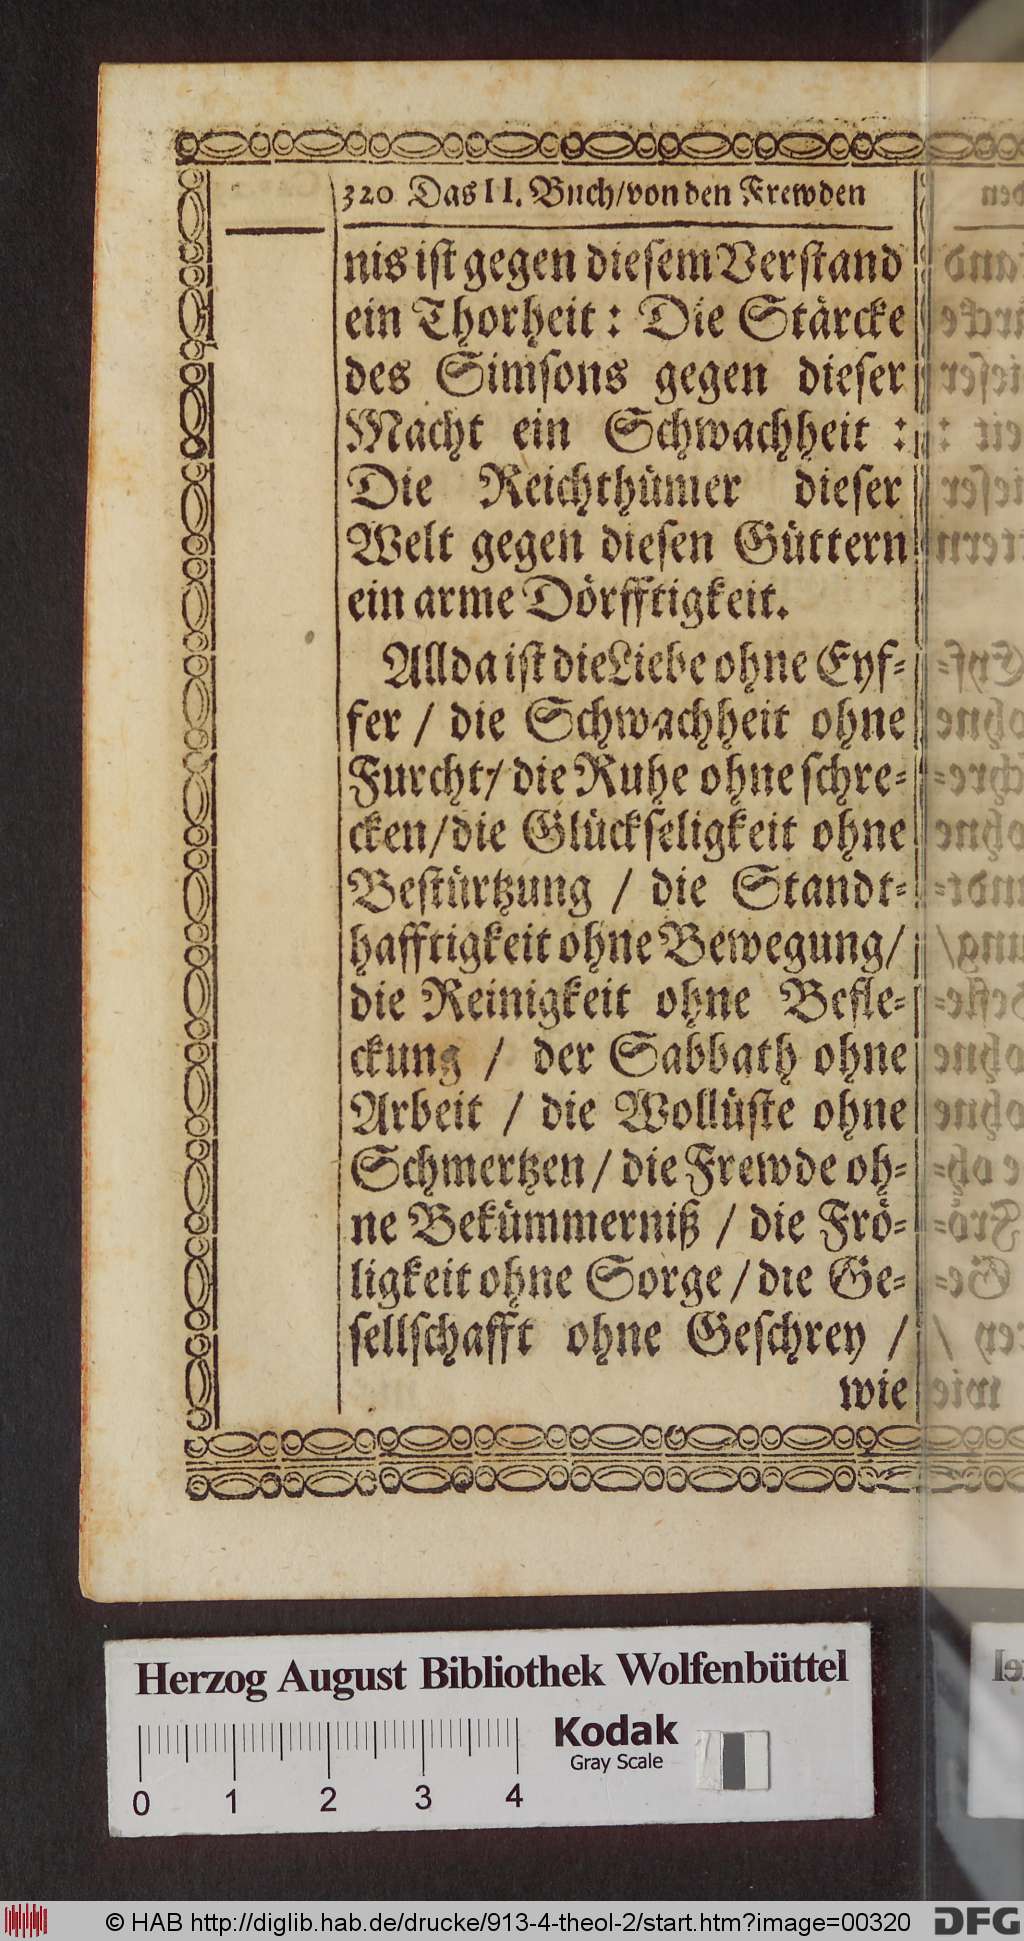 320 Das II. Buch/von den Frewden
nis ist gegen diesem Verstand
ein Thorheit : Die Stärcke
des Simsons gegen dieser
Macht ein Schwachheit :
Die Reichthümer dieser
Welt gegen diesen Güttern
ein arme Dörfftigkeit.
Allda ist die Liebe ohne Eyf-
fer / die Schwachheit ohne
Furcht / die Ruhe ohne schre-
cken/die Glückseligkeit ohne
Bestürtzung / die Standt-
hafftigkeit ohne Bewegung/
die Reinigkeit ohne Befle-
ckung / der Sabbath ohne
Arbeit / die Wollüste ohne
Schmertzen / die Frewde oh-
ne Bekümmerniß / die Frö-
ligkeit ohne Sorge / die Ge-
sellschafft ohne Geschrey /
wie
Herzog August Bibliothek Wolfenbüttel
Kodak
Gray Scale
0 1 2 3 4
© HAB http://diglib.hab.de/drucke/913-4-theol-2/start.htm?image=00320
DFG